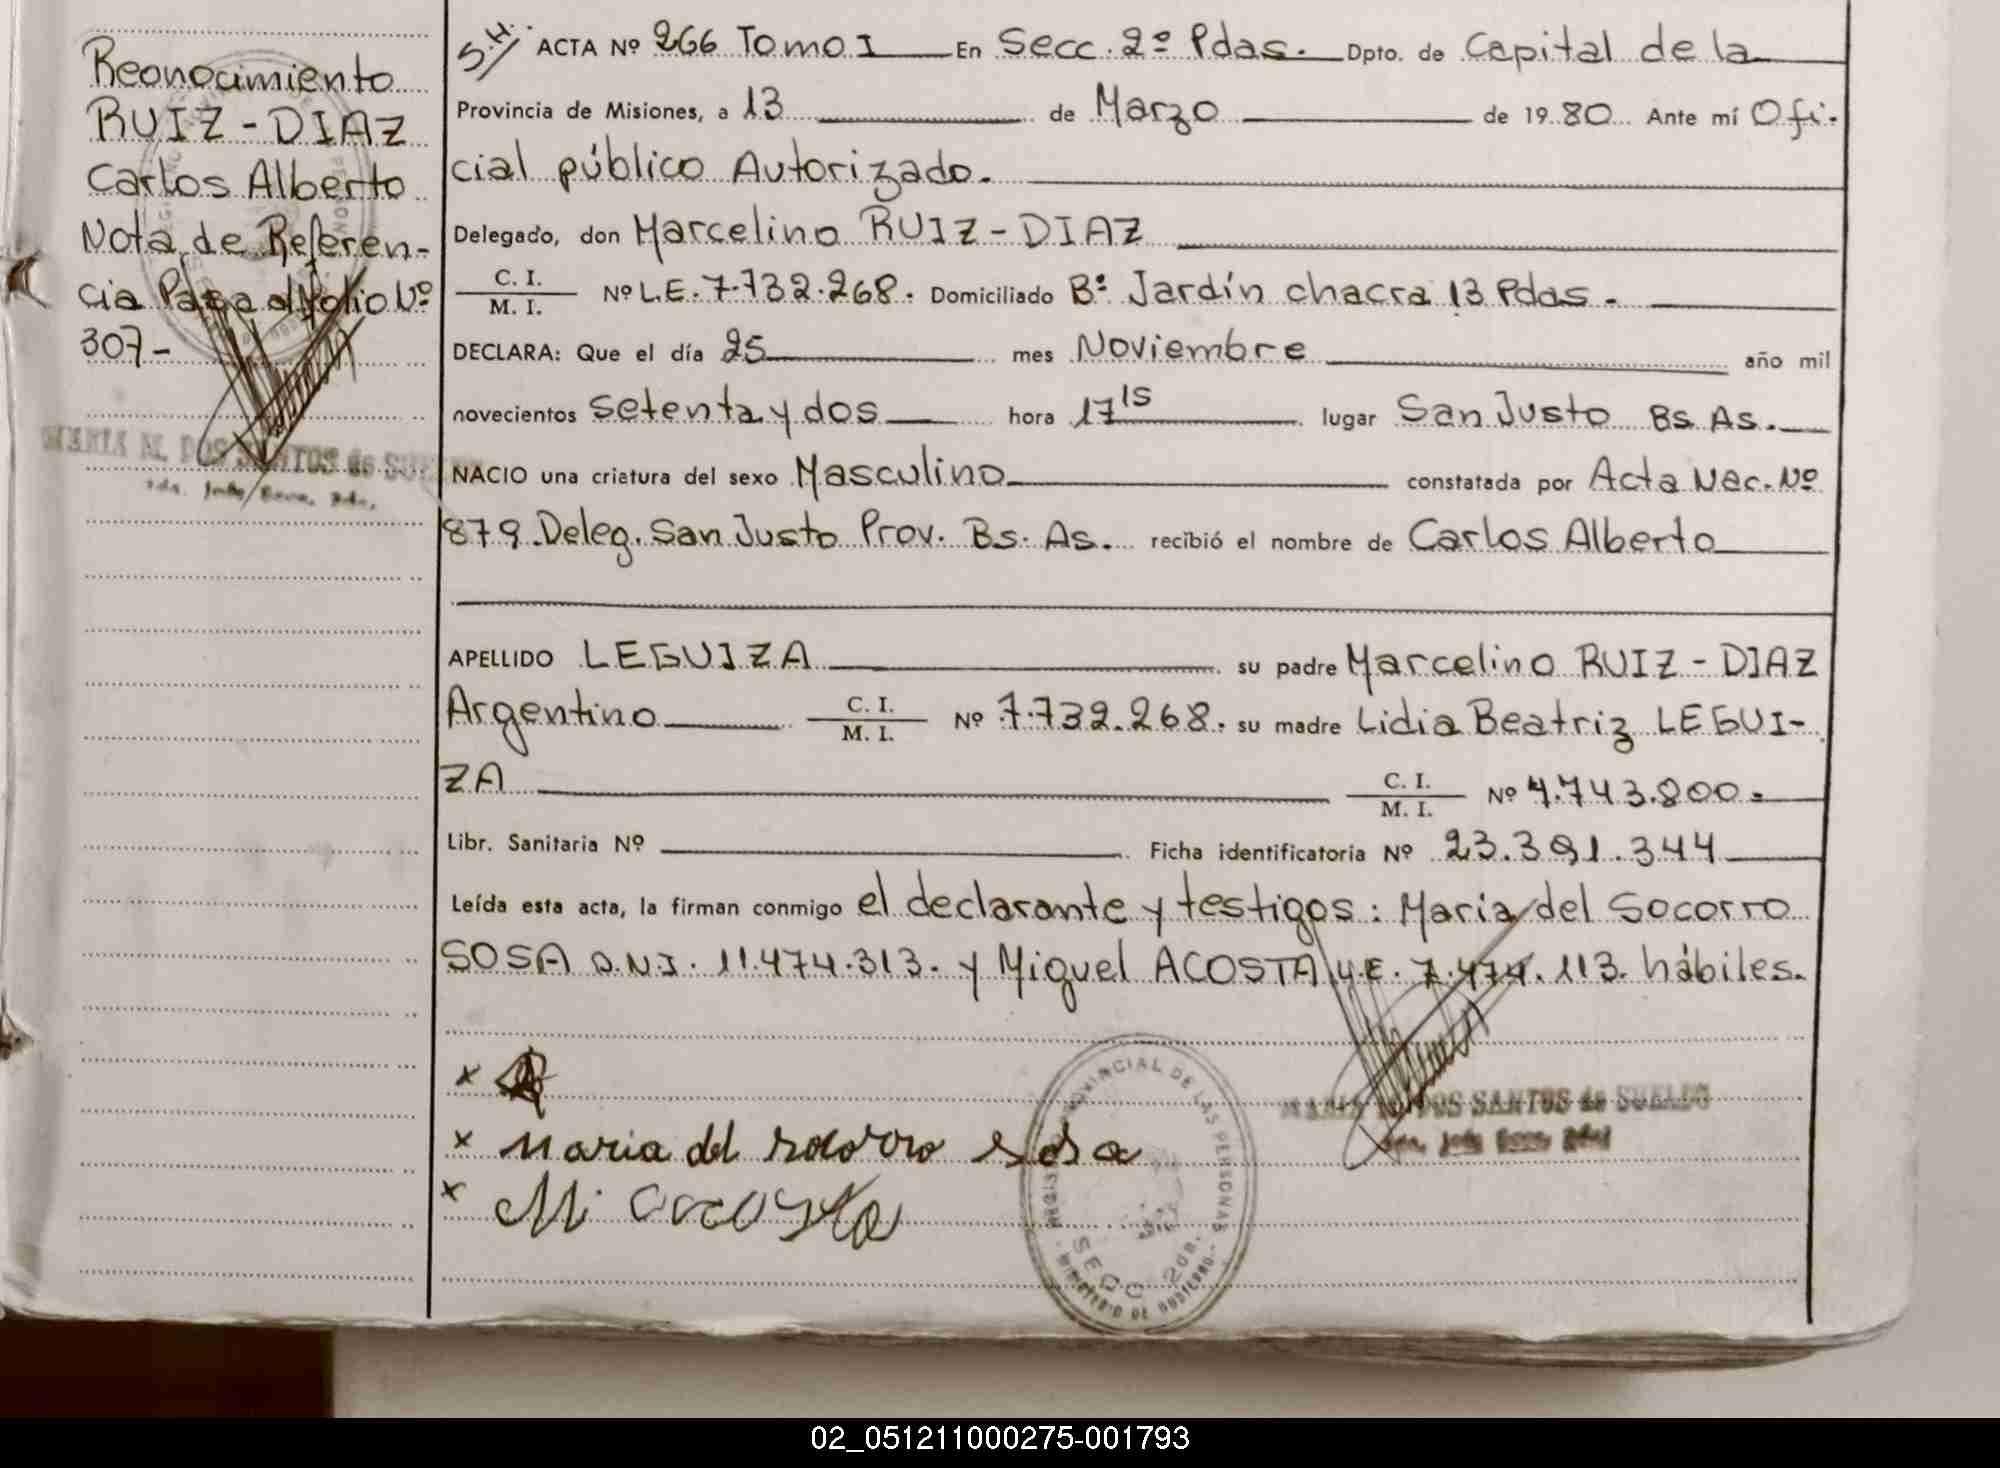 Reonocimiento
RUIZ-DIAZ
Carlos Alberto
Nota de Referen-
cia Pasa al folio Nº
307-
MARIA M. DOS SANTOS de SUELDO
S.H. ACTA Nº 266 Tomo I En Secc. 2º Pdas. Dpto. de Capital de la
Provincia de Misiones, a 13 de Marzo de 1980 Ante mí Ofi-
cial público Autorizado.
Delegado, don Marcelino RUIZ-DIAZ
C. I.
M. I. Nº L.E. 7.732.268. Domiciliado Bº Jardín chacra 13 Pdas.
DECLARA: Que el día 25 mes Noviembre año mil
novecientos setenta y dos hora 17 15 lugar San Justo Bs As.
NACIO una criatura del sexo Masculino constatada por Acta Nac. Nº
879 Deleg. San Justo Prov. Bs. As. recibió el nombre de Carlos Alberto
APELLIDO LEGUIZA su padre Marcelino RUIZ-DIAZ
Argentino C. I. M. I. Nº 7.732.268. su madre Lidia Beatriz LEGUI-
ZA C. I. M. I. Nº 4.743.800=
Libr. Sanitaria Nº Ficha identificatoria Nº 23.391.344
Leída esta acta, la firman conmigo el declarante y testigos: Maria del Socorro
SOSA D.N.I. 11.474.313. y Miguel ACOSTA L.E. 7.474.113. hábiles.
x
x Maria del socorro sosa
x Mi acosta
REGISTRO PROVINCIAL DE LAS PERSONAS
SECC. 2DA.
MINISTERIO DE GOBIERNO
MARIA M. DOS SANTOS de SUELDO
02_051211000275-001793